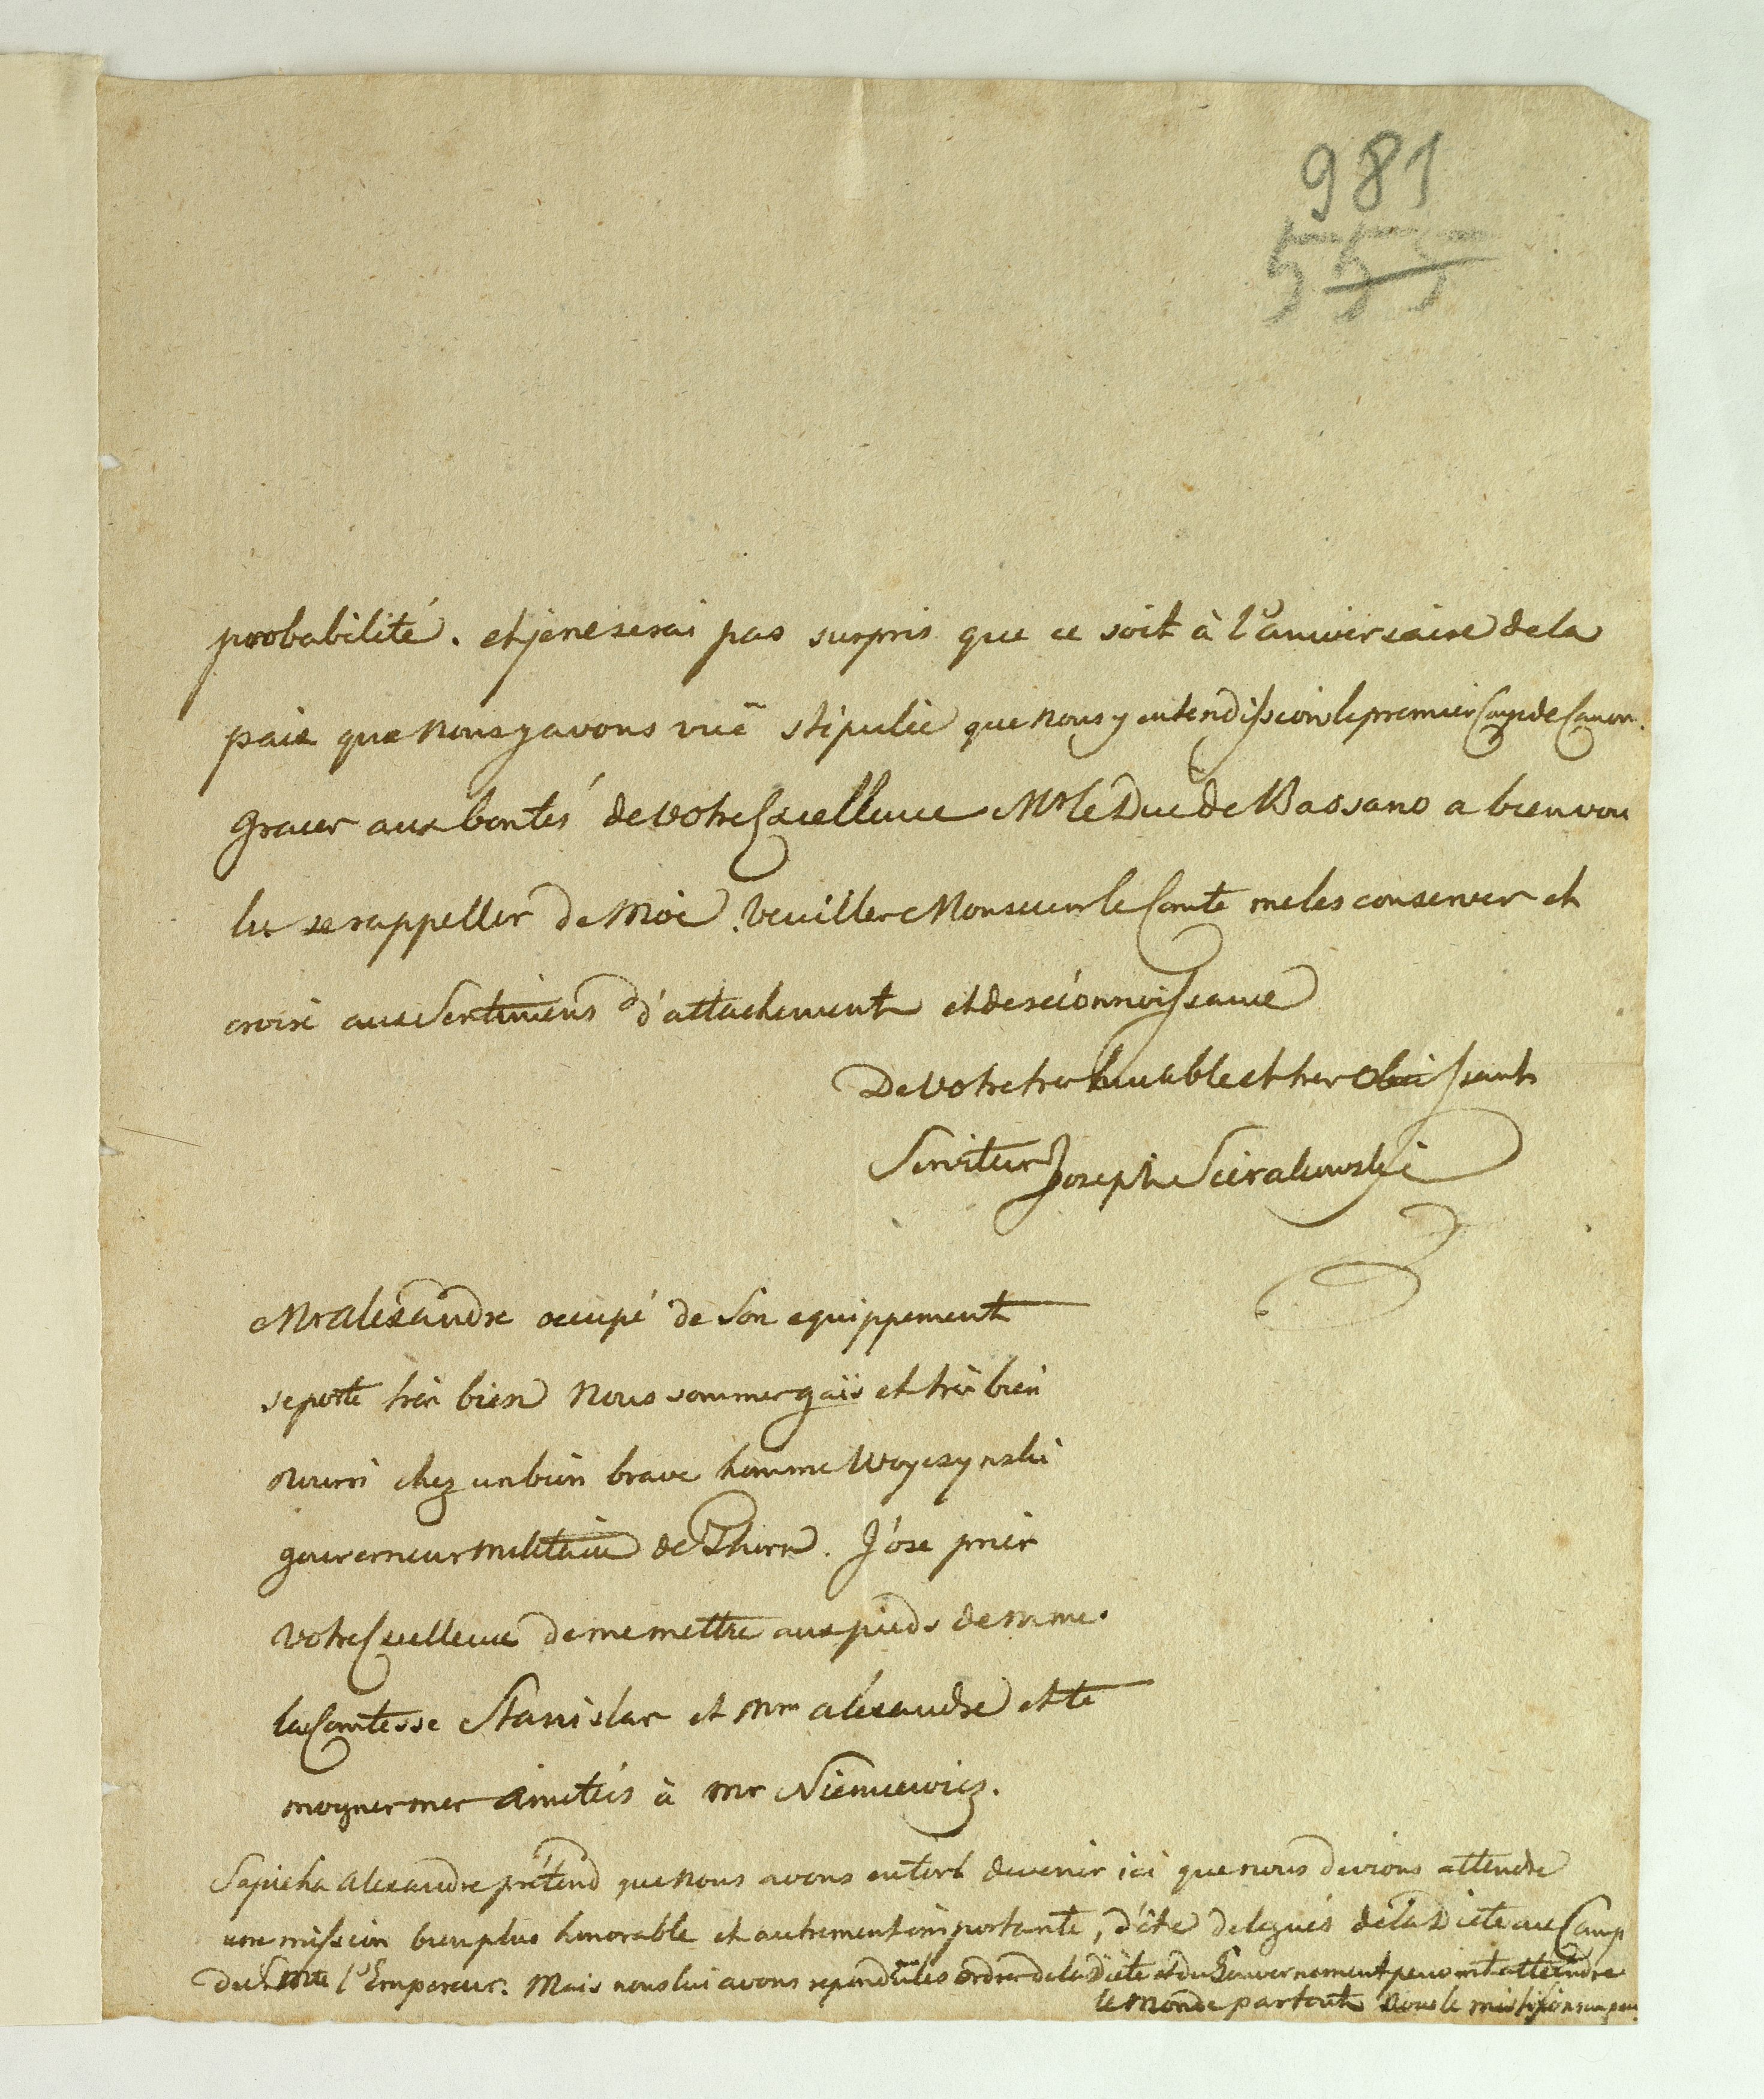 981
555
probabilité. et je ne serai pas surpris que ce soit à l'anniversaire de la
paix que nous y avons vuë stipulée que nous y entendissions le premier Coup de Canon.
graces aux bontés de votre Excellence Mr le Duc de Bassano a bien vou
lu se rappeller de Moi. Veuillez Monsieur le Comte me les conserver et
croire aux Sentimens d'attachement et de reconnoissance
De Votre tres humble et tres obeissant
Serviteur Joseph Sierakowski
Mr Alexandre occupé de Son equippement
se porte très bien Nous sommes gais et très bien
nourri chez un bien brave homme Woyczynski
gouverneur militaire de Thorn. J'ose prier
Votre Excellence de me mettre aux pieds de Mme.
la Comtesse Stanislas et Mme alexandre et te
moigner mes Amitiés à Mr Niemcewicz.
Sapieha Alexandre prétend que nous avons eu tort de venir ici que nous devions attendre
une mission bien plus honorable et autrement importante, d'être delegués de la Diete au Camp
de l'Empereur. Mais nous lui avons repondu les ordres de la Diete et du Gouvernement peuvent atteindre
le Monde partout Nous le mistifions un peu.